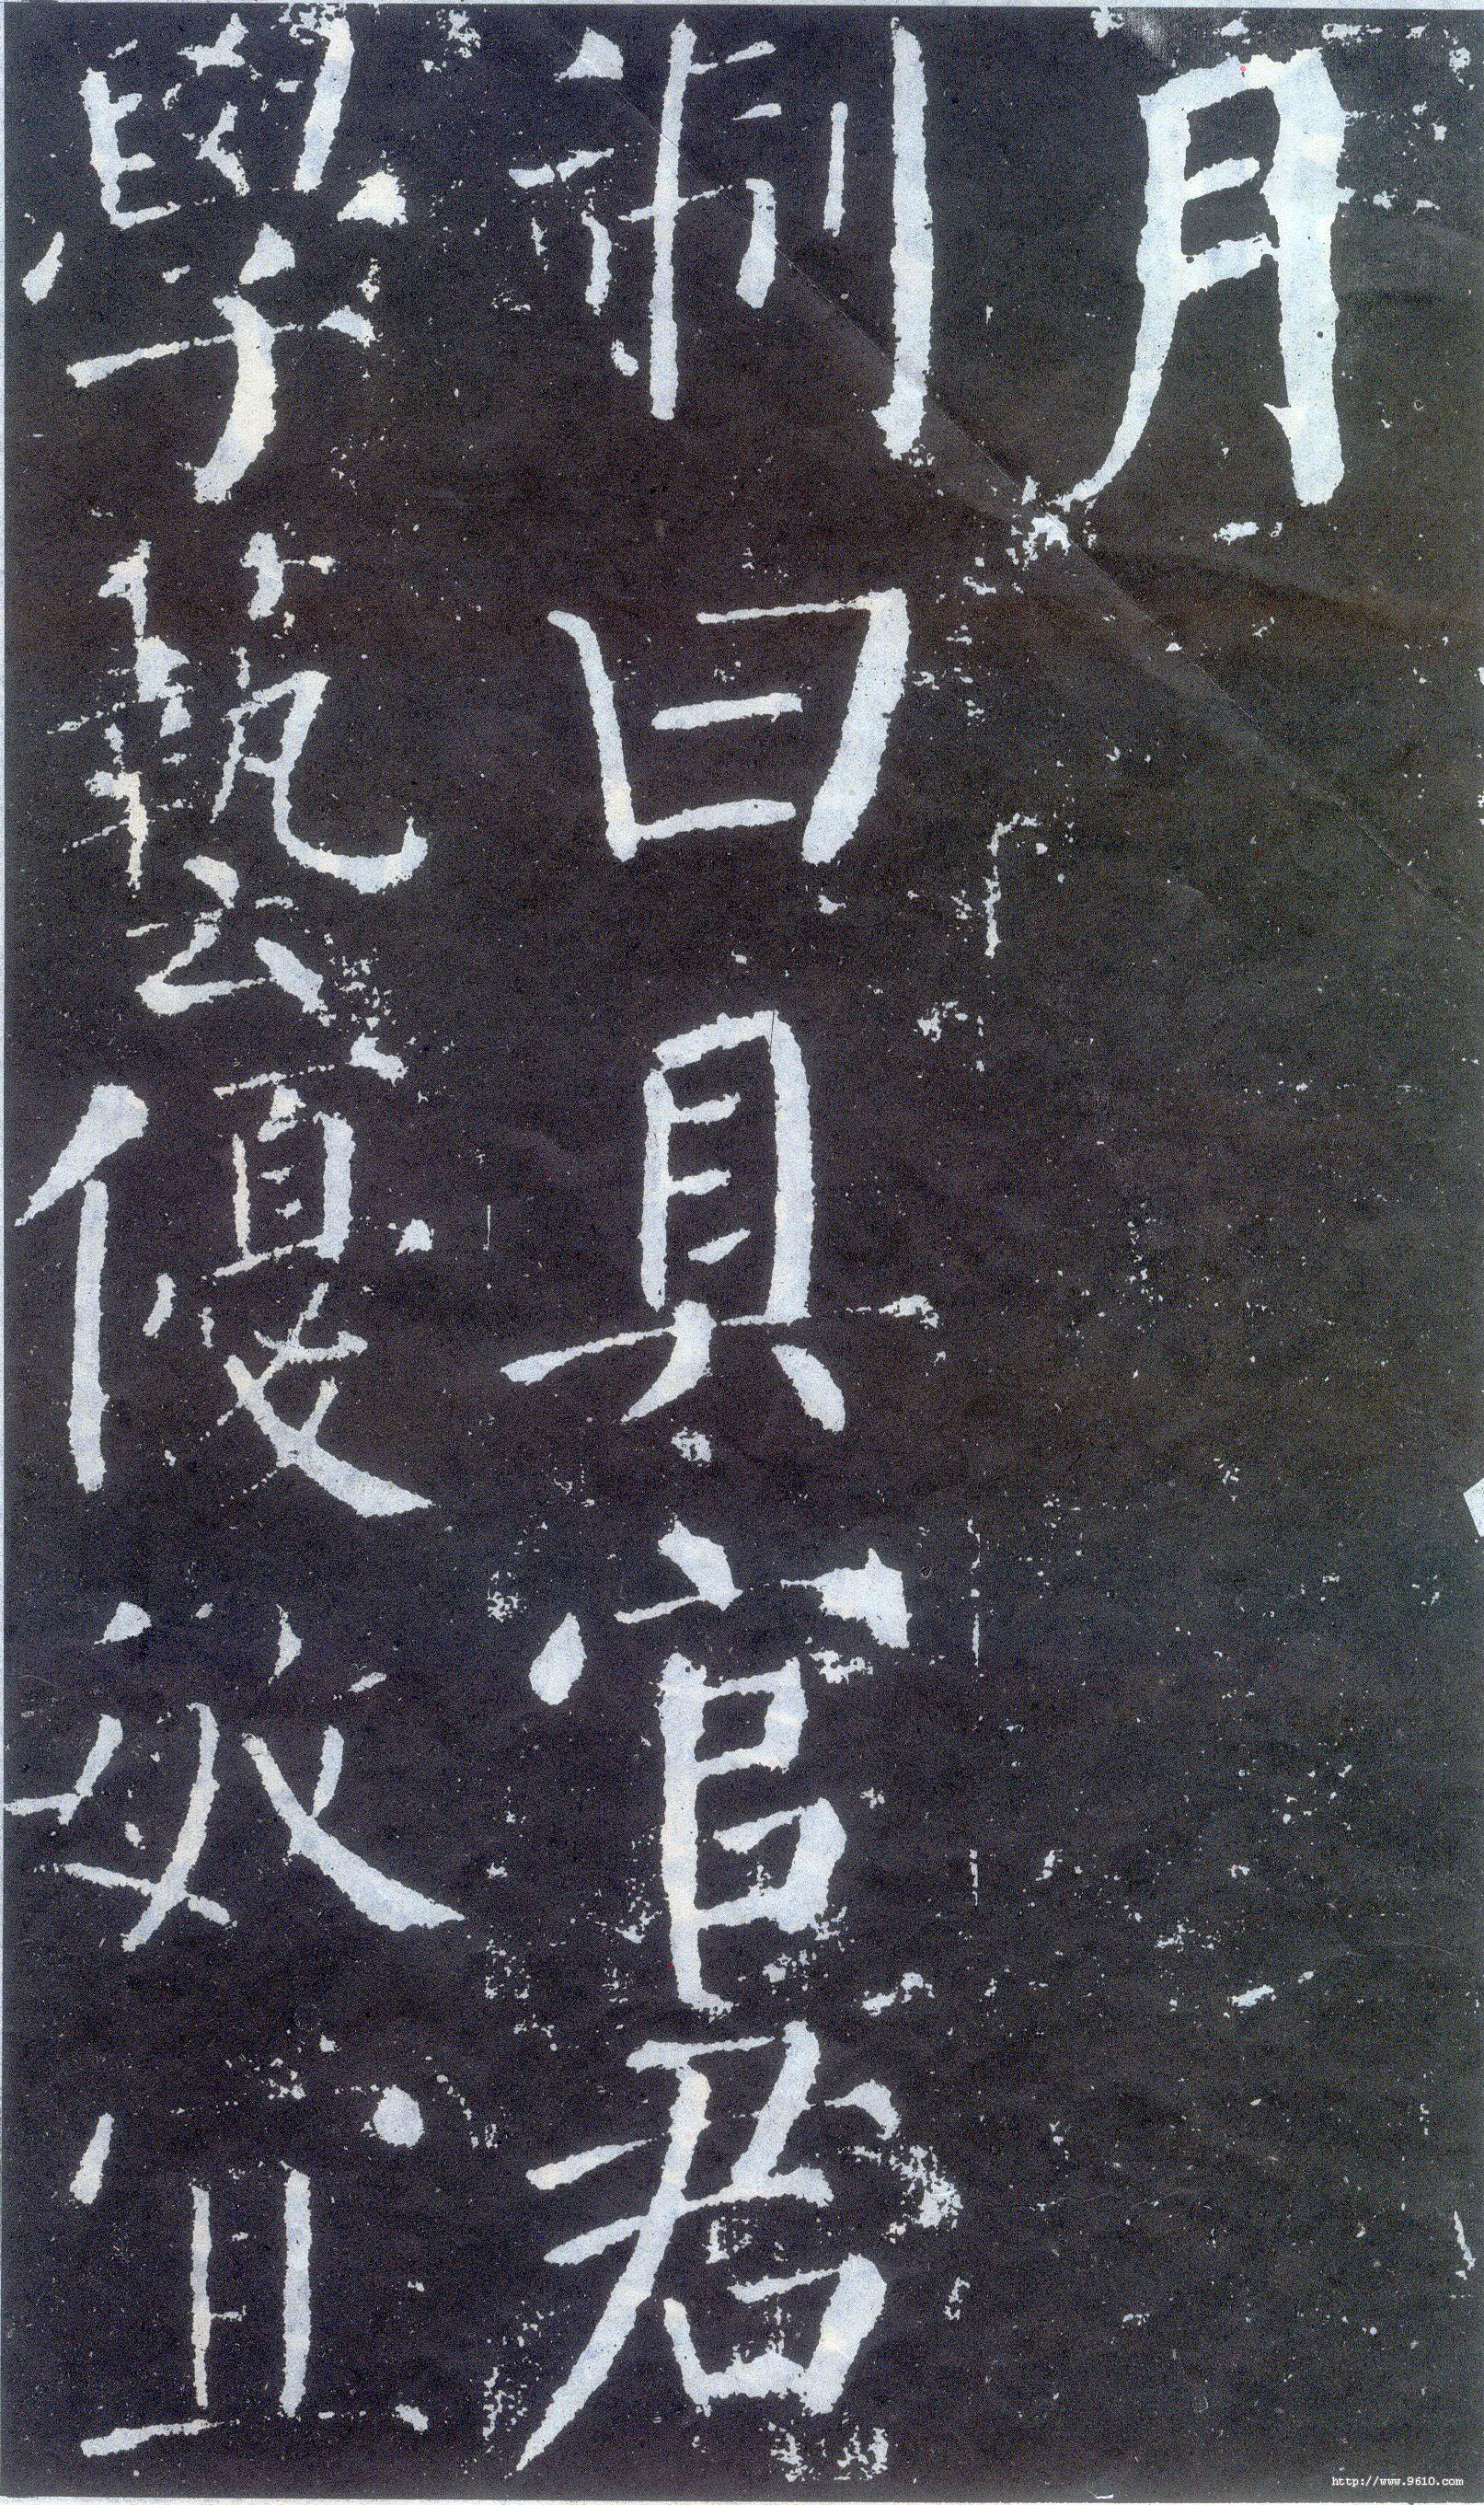 月
制曰具官君
學藝優敏宜
http://www.9610.com